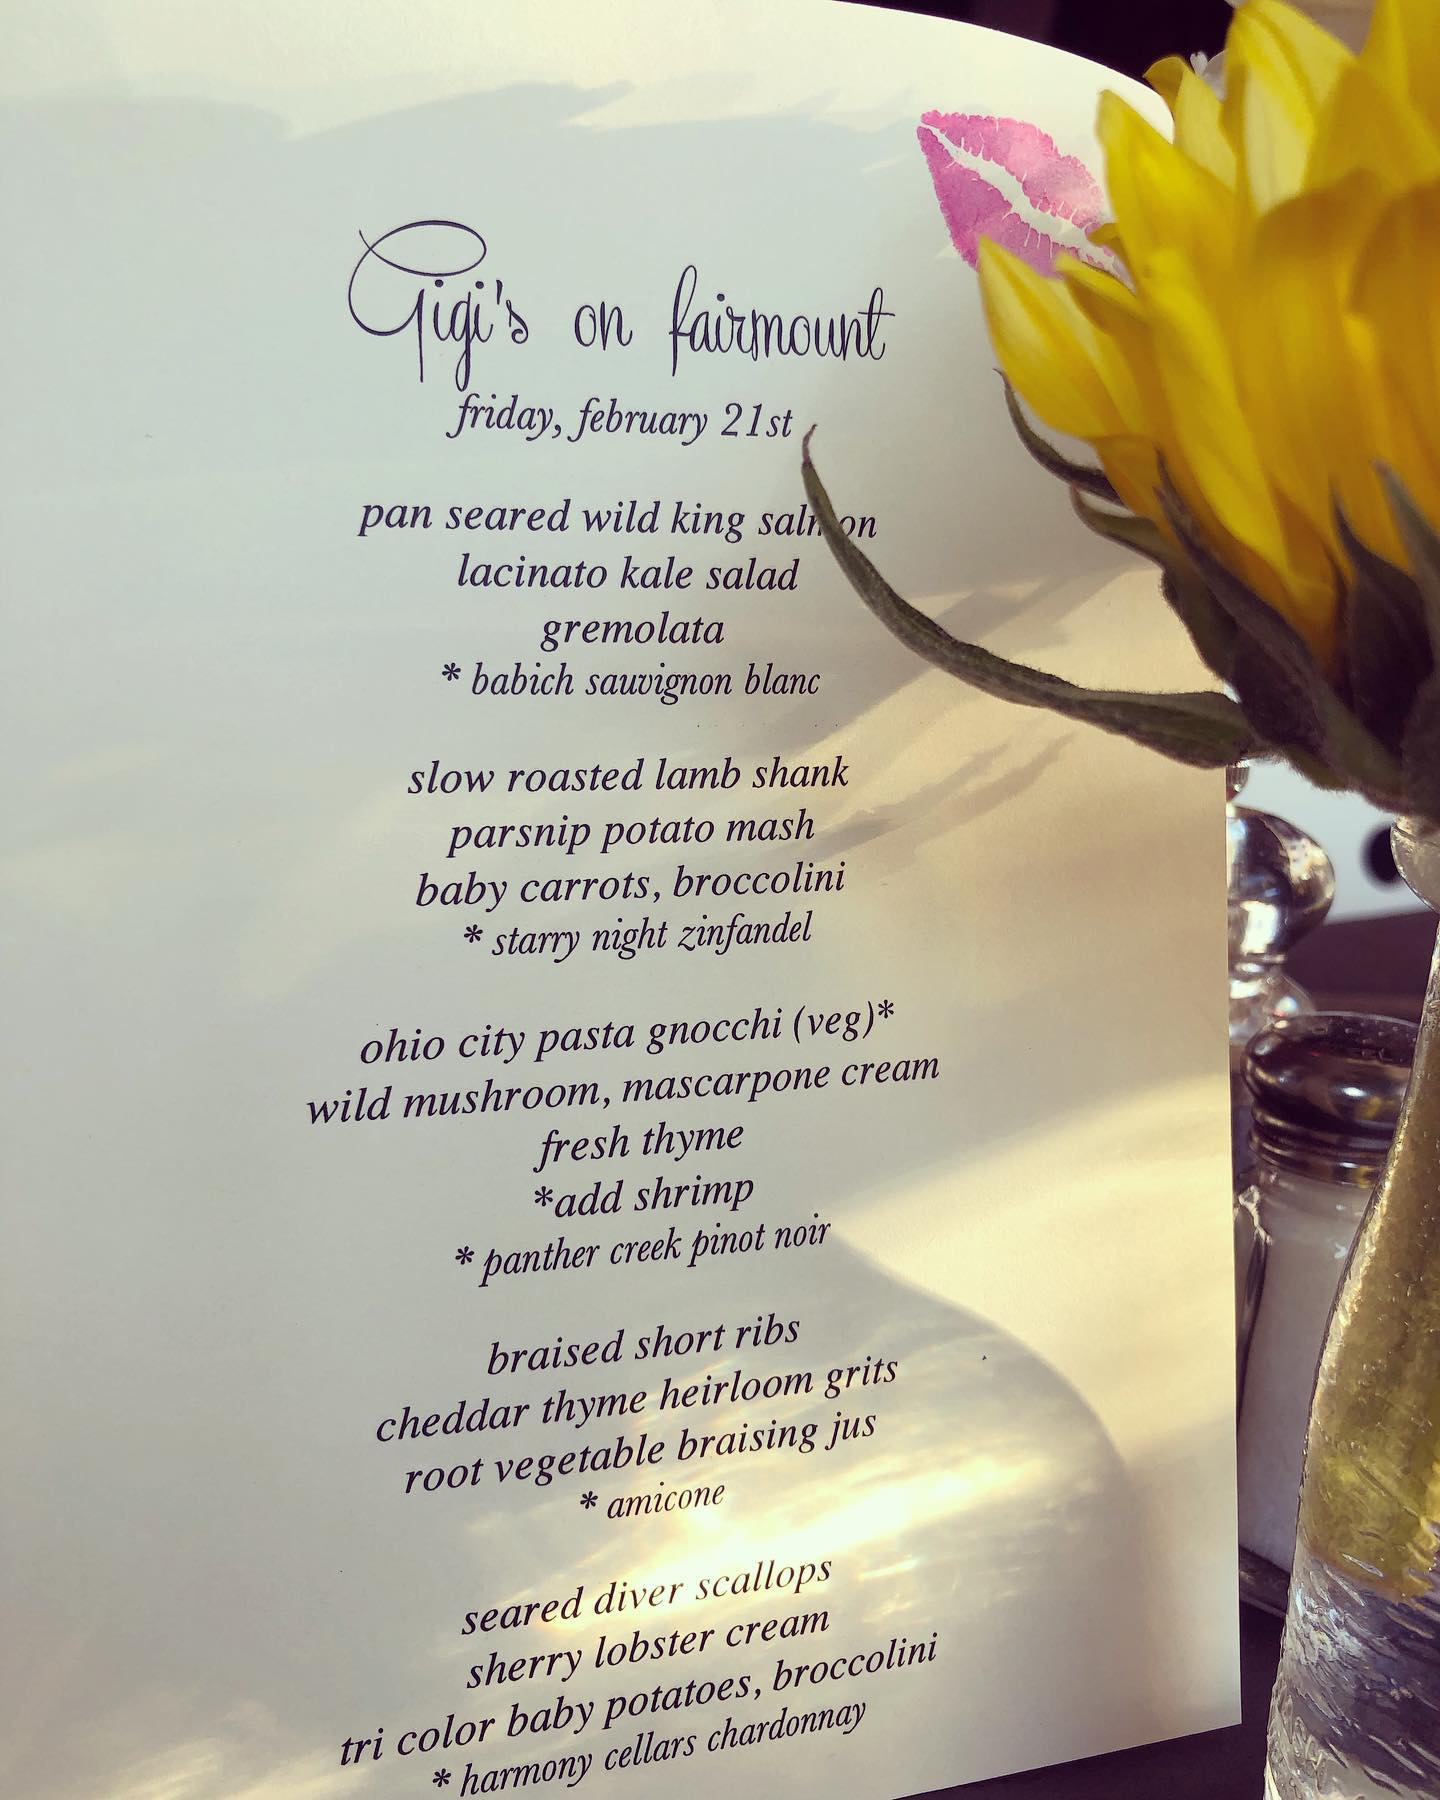 Gigi's on fairmount
friday, february 21st
pan seared wild king salmon
lacinato kale salad
gremolata
* babich sauvignon blanc
slow roasted lamb shank
parsnip potato mash
baby carrots, broccolini
* starry night zinfandel
ohio city pasta gnocchi (veg)*
wild mushroom, mascarpone cream
fresh thyme
*add shrimp
* panther creek pinot noir
braised short ribs
cheddar thyme heirloom grits
root vegetable braising jus
* amicone
seared diver scallops
sherry lobster cream
tri color baby potatoes, broccolini
* harmony cellars chardonnay